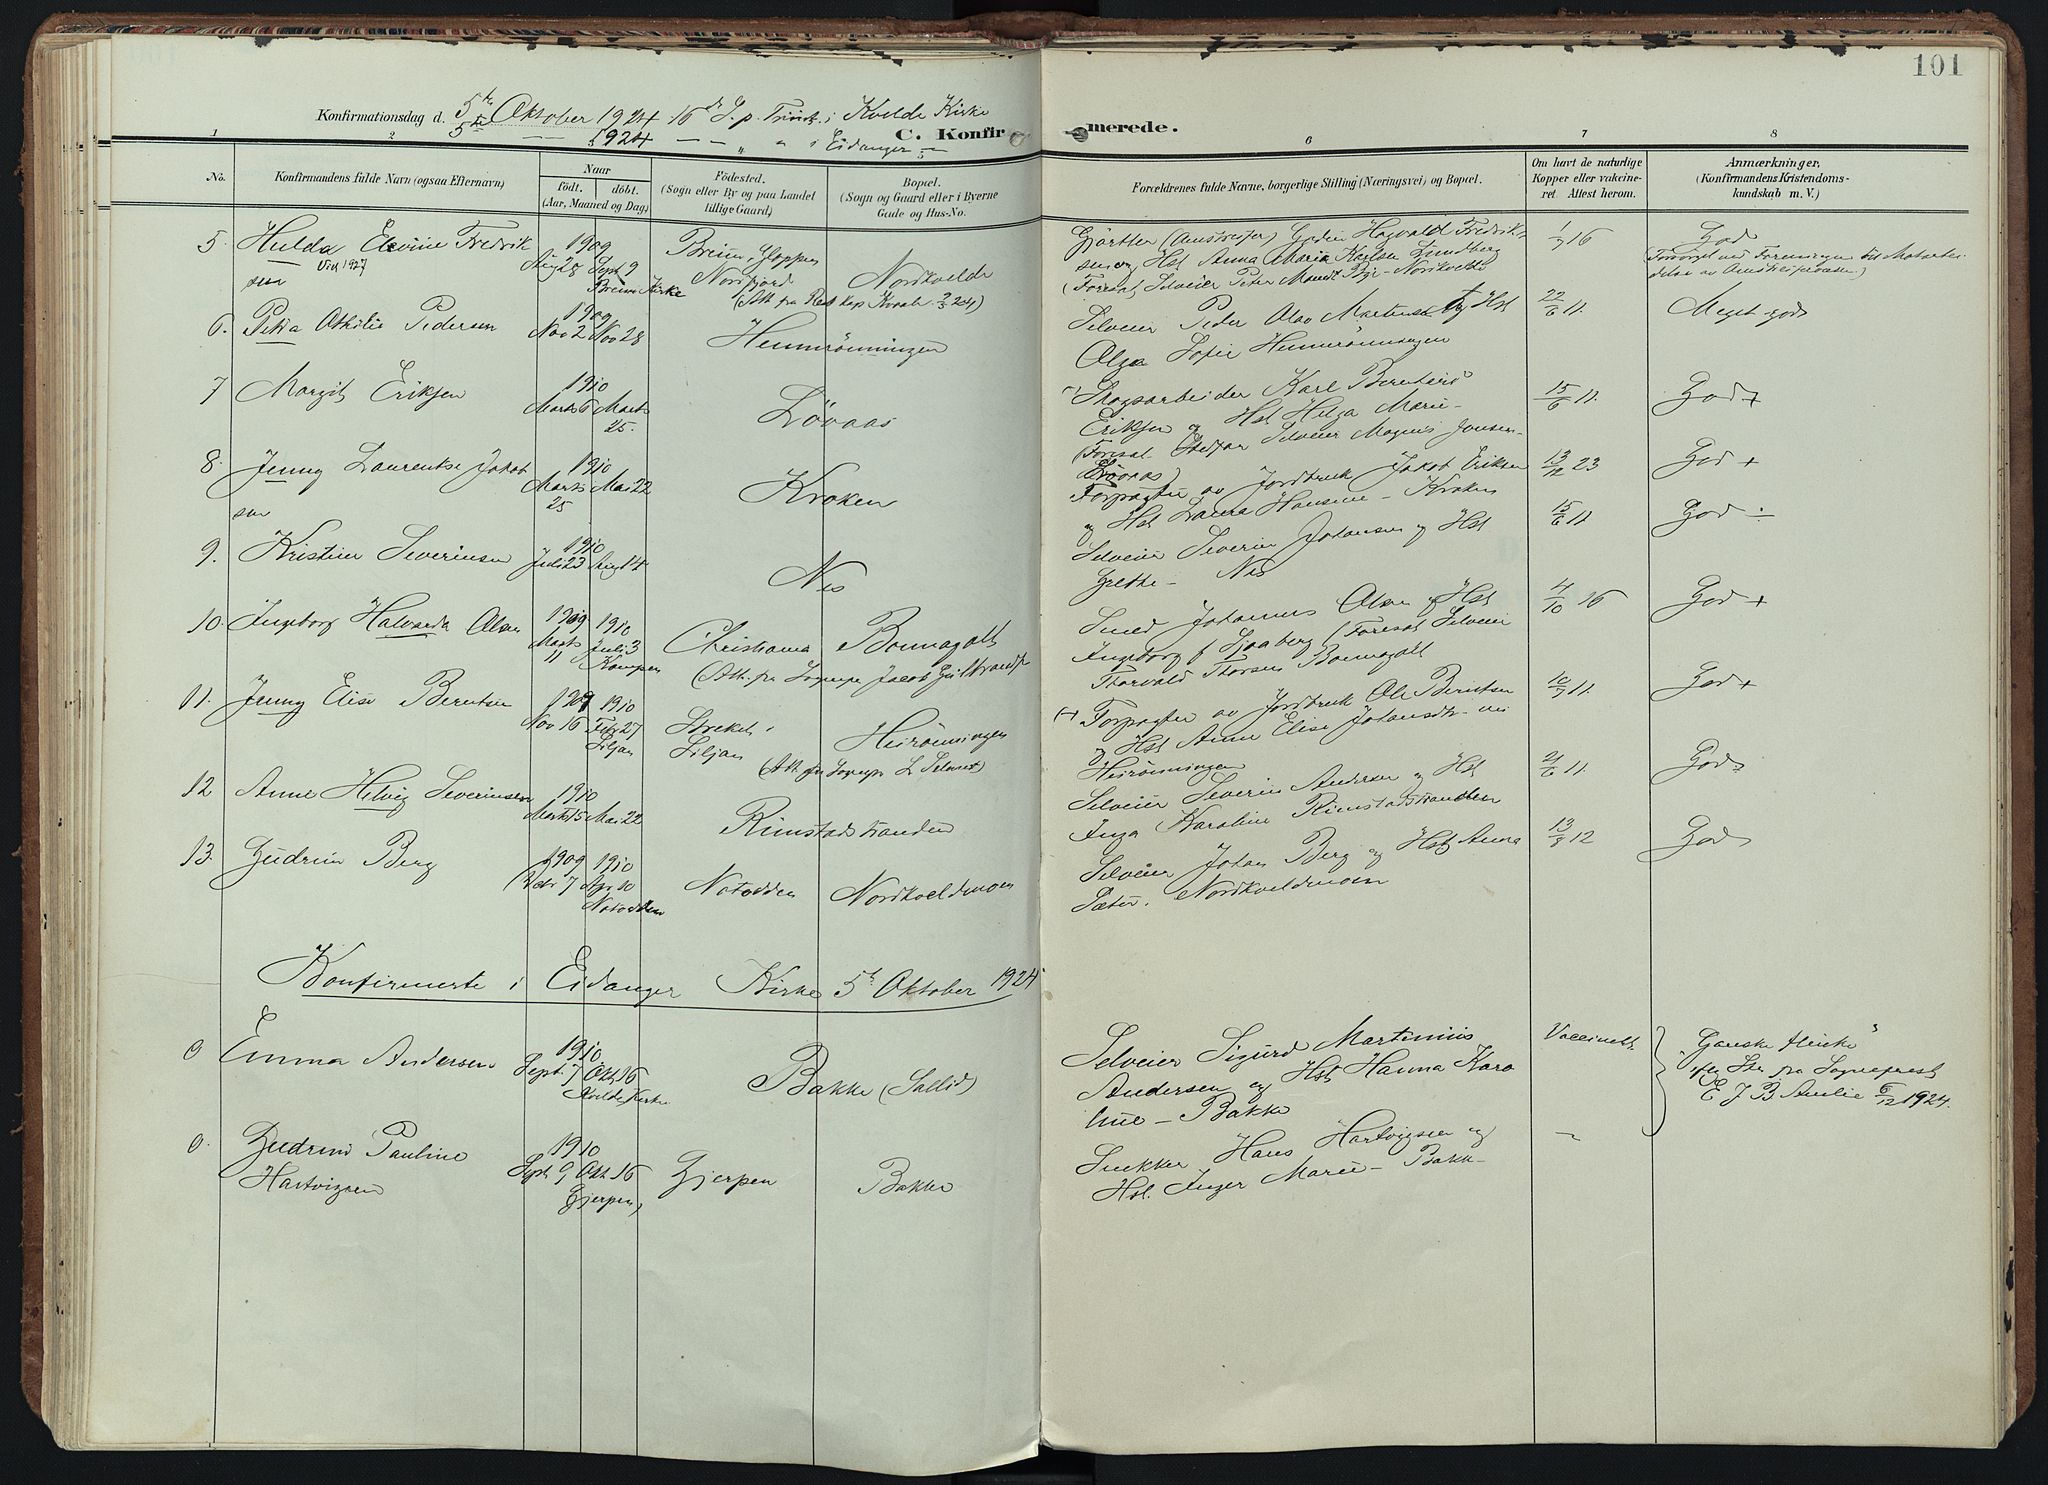 101
Konfirmationsdag d. 5te Oktober 1924 16de S. p. Trinit. i Kvelde Kirke
5te — 1924 — — " " i Eidanger —
C. Konfirmerede.
1 2 3 4 5 6 7 8
No.
Konfirmandens fulde Navn (ogsaa Efternavn)
Naar
født. døbt.
(Aar, Maaned og Dag)
Fødested.
(Sogn eller By og paa Landet
tillige Gaard)
Bopæl.
(Sogn og Gaard eller i Byerne
Gade og Hus-No.
Forældrenes fulde Navne, borgerlige Stilling (Næringsvei) og Bopæl.
Om havt de naturlige
Kopper eller vakcine-
ret Attest herom.
Anmærkninger,
(Konfirmandens Kristendoms-
kundskab m. V.)
5. Hulda Elvine Fredrik
sen
Vid 1927
1909
Aug 28 Sept 9
Breim Kirke
Breim,
Nordfjord
Nordkvelde
Gjørtler
Fredrik-
sen og Hst Anna Maria Karlsen Lundberg
(Foresat Selveier Peter
Nordkvelde
1/7 16
God
6. Petra Othilie Pedersen
1909
Nov 2 Nov 28
Hemmrønningen
Selveier Peder Olav Martinsen og Hst
Olga Sofie Hemmrønningen
22/6 11.
Meget god
7 Margit Eriksen
1910
Marts 6 Marts
25.
Løvaas
Skogsarbeider Karl
Eriksen og Hst Helga Marie —
(Foresat Stedfar Selveier Magnus Jensen —
Løvaas)
15/6 11.
God +
8. Jenny Laurentse Jakob
sen
1910
Marts Mai 22
25
Kroken
Forpagter av Jordbruk Jakob Eriksen
og Hst Laura Hansine — Kroken
13/12 23
God +
9. Kristian Severinsen
1910
Juli 23 Aug 14
Nes
Selveier Severin Johansen og Hst
Grethe — Nes
15/6 11
God ÷
10. Ingeborg Halvarda Olsen
1909 1910
Marts Juli 3
11 Kampen
Christiania Bommagalt
(Att. fra Sogneprest Jacob
Smed Johannes Olsen og Hst
Ingeborg f Sjaaberg (Foresat Selveier
Thorvald Thorsen Bommagalt
4/10 16
God +
11. Jenny Elise Berntsen
1909 1910
Nov 16 Febr 27
Siljan
Siljan
Heirønningen
Forpagter av Jordbruk Ole Berntsen
og Hst Anne Elise Johansdtr
Heirønningen
10/7 11.
God +
12 Anne Helvig Severinsen
1910
Marts 15 Mai 22
Rimstadstranden
Selveier Severin Andersen og Hst
Inga Karoline Rimstadstranden
21/6 11.
God
13. Gudrun Berg
1909 1910
7 Apr. 10
Notodden
Notodden Nordkveldmoen
Selveier Johan Berg og Hst Anna
Sæter. Nordkveldmoen
13/9 12
God
Konfirmerte i Eidanger Kirke 5te Oktober 1924
0 Emma Andersen
1910
Sept. 7 Okt 16
Kvelde Kirke
Bakke
Selveier Sigurd Martinius
Andersen og Hst Hanna Karo
line — Bakke
Vaccinert.
"Ganske flinke"
efter Skr. fra Sogneprest
E J B Aulie 6/12 1924.
0. Gudrun Pauline
Hartvigsen
1910
Sept 9 Okt 16
Gjerpen
Gjerpen Bakke
Snekker Hans Hartvigsen og
Hst. Inger Marie — Bakke
—